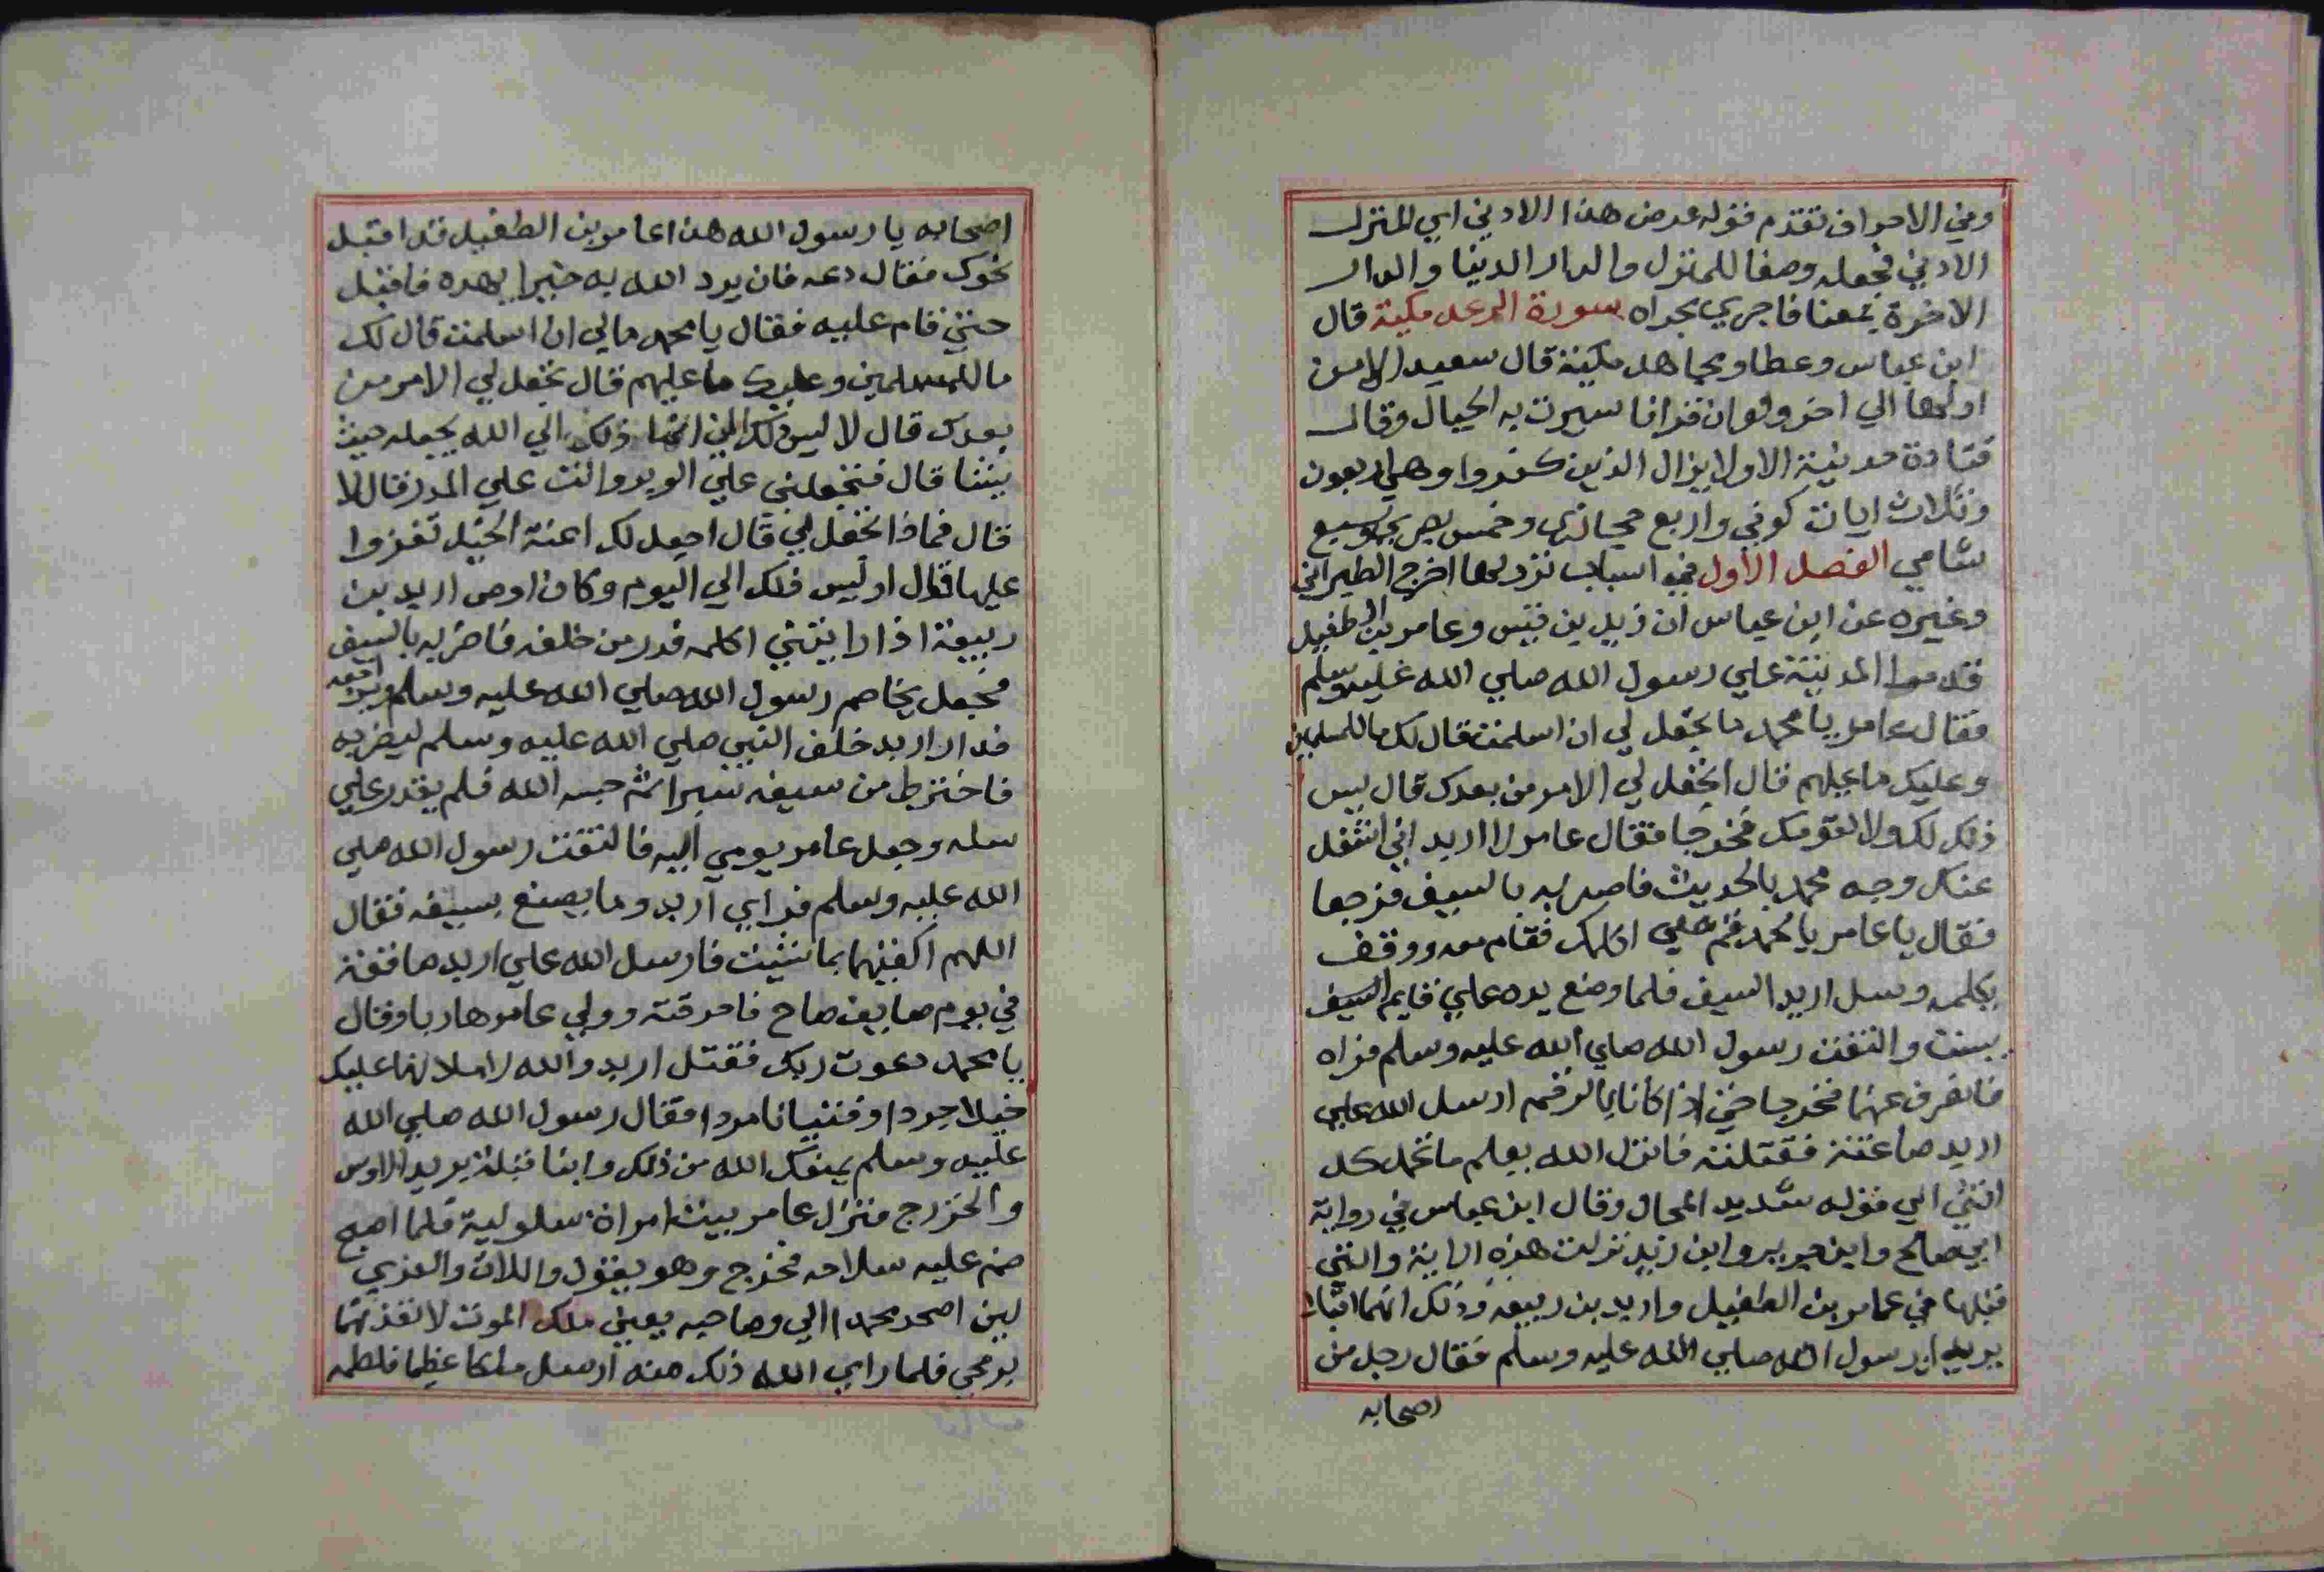 وفي الاعراف تقدم فقوله عرض هذا الادني اي المنزل
الادني فجعله وصفا للمنزل والدار الدنيا والدار
الاخرة بمعنا فاجري مجراه سورة الرعد مكية قال
ابن عباس وعطا ومجاهد مكية قال سعيد الا من
اولها الي اخر ولو ان قرانا سيرت به الجبال وقال
قتادة مدنية الا ولا يزال الذين كفروا وهي اربعون
وثلاث ايات كوفي واربع حجازي وخمس بصري وسبع
شامي الفصل الاول في اسباب نزولها اخرج الطبراني
وغيره عن ابن عباس ان زيد بن قيس وعامر بن الطفيل
قدموا المدينة علي رسول الله صلي الله عليه وسلم
فقال عامر يا محمد ما تجعل لي ان اسلمت قال لك ما للمسلمين
وعليك ما عليهم قال اتجعل لي الامر من بعدك قال ليس
ذلك لك ولا لقومك فخرجا فقال عامر لاربد اني اشغل
عنك وجه محمد بالحديث فاضربه بالسيف فرجعا
فقال يا عامر يا محمد قم معي اكلمك فقام معه ووقف
يكلمه وسل اربد السيف فلما وضع يده علي قايم السيف
يبست والتفت رسول الله صلي الله عليه وسلم فراه
فانصرف عنهما فخرجا حتي اذا كانا بالرقم ارسل الله علي
اربد صاعقة فقتلته فانزل الله يعلم ما تحمل كل
انثي الي قوله شديد المحال وقال ابن عباس في رواية
ابي صالح وابن جرير وابن زيد نزلت هذه الاية والتي
قبلها في عامر بن الطفيل واربد بن ربيعة وذلك انهما اقبلا
يريدان رسول الله صلي الله عليه وسلم فقال رجل من
اصحابه
اصحابه يا رسول الله هذا عامر بن الطفيل قد اقبل
نحوك فقال دعه فان يرد الله به خيرا يهده فاقبل
حتي قام عليه فقال يا محمد مالي ان اسلمت قال لك
ما للمسلمين وعليك ما عليهم قال تجعل لي الامر من
بعدك قال لا ليس ذلك الي انما ذلك الي الله يجعله حيث
يشا قال فتجعلني علي الوبر وانت علي المدر قال لا
قال فماذا تجعل لي قال اجعل لك اعنة الخيل تغزوا
عليها قال اوليس ذلك الي اليوم وكان اوصي اربد بن
ربيعة اذا رايتني اكلمه فدر من خلفه فاضربه بالسيف
فجعل يخاصم رسول الله صلي الله عليه وسلم ويراجعه
فدار اربد خلف النبي صلي الله عليه وسلم ليضربه
فاخترط من سيفه شبرا ثم حبسه الله فلم يقدر علي
سله وجعل عامر يومي اليه فالتفت رسول الله صلي
الله عليه وسلم فراي اربد وما يصنع بسيفه فقال
اللهم اكفنيهما بما شيت فارسل الله علي اربد صاقعة
في يوم صايف صاح فاحرقته وولي عامر هاربا وقال
يا محمد دعوت ربك فقتل اربد والله لاملانها عليك
خيلا جردا وفتيانا مردا فقال رسول الله صلي الله
عليه وسلم يمنعك الله من ذلك وابنا قيلة يريد الاوس
والخزرج فنزل عامر بيت امراة سلولية فلما اصبح
ضم عليه سلاحه فخرج وهو يقول واللات والعزي
لين اصحر محمد الي وصاحبه يعني ملك الموت لانفذنهما
برمحي فلما راي الله ذلك منه ارسل ملكا عظيما فلطمه